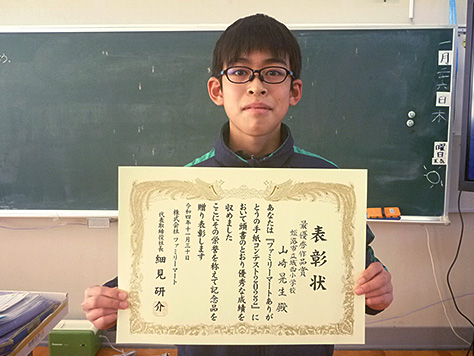 表彰状
最優秀作品賞
姫路市立城西小学校
山﨑晃生 殿
あなたは『ファミリーマートありが
とうの手紙コンテスト2022』に
おいて頭書のとおり優秀な成績を
収めました
ここにその栄誉を称えて記念品を
贈り表彰します
令和四年十一月三十日
株式会社 ファミリーマート
代表取締役社長 細見研介
月
日
木
曜日